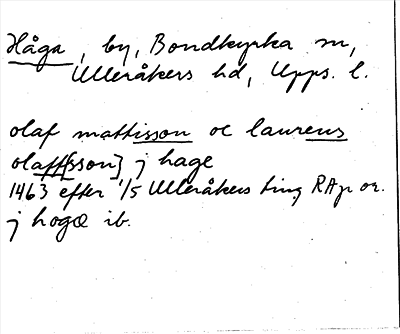 Håga, by, Bondkyrka sn,
Ulleråkers hd, Upps. l.
olaf mattisson oc laurens
olaff[sson] j hage
1463 efter 1/5 Ulleråkers ting RAp or.
j hogæ ib.